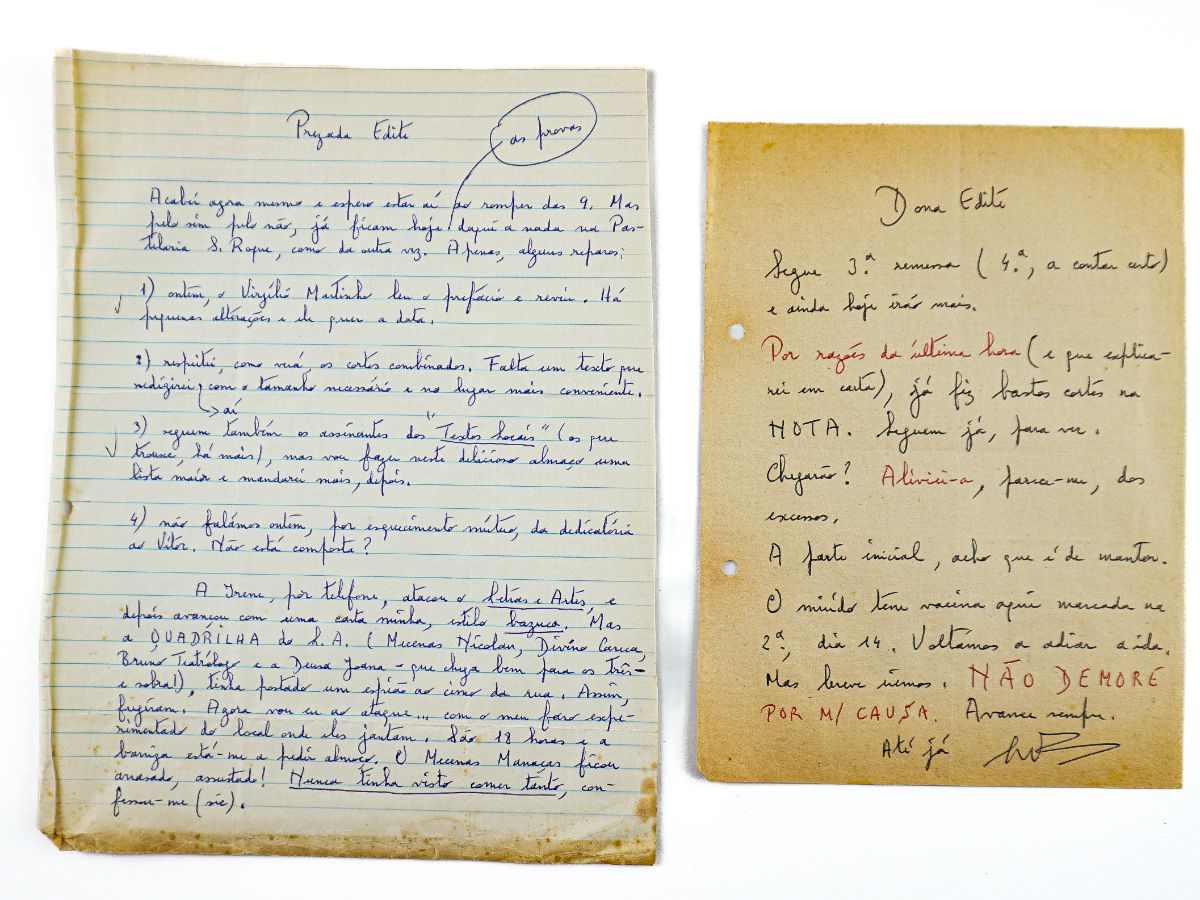 Prezada Edite
as provas
Acabei agora mesmo e espero estar aí ao romper das 9. Mas
pelo sim pelo não, já ficam hoje daqui a nada na Pas-
telaria S. Roque, como da outra vez. Apenas, alguns reparos:
1) ontem, o Virgílio Martinho leu o prefácio e reviu. Há
pequenas alterações e ele quer a data.
2) respeitei, como verá, os cortes combinados. Falta um texto que
redigirei com o tamanho necessário e no lugar mais conveniente.
aí
3) seguem também os assinantes dos "Textos Locais" (os que
trouxe, há mais), mas vou fazer neste delicioso almaço uma
lista maior e mandarei mais, depois.
4) não falámos ontem, por esquecimento mútuo, da dedicatória
ao Vitor. Não está composta?
A Irene, por telefone, atacou o Letras e Artes, e
depois avançou com uma carta minha, estilo bazuca. Mas
a QUADRILHA do L.A. (Mecenas Nicolau, Divino Careca,
Bruno Teatrólogo e a Deusa Joana - que chega bem para os três -
e sobra!), tinha postado um espião ao cimo da rua. Assim,
fugiram. Agora vou eu ao ataque... com o meu faro expe-
rimentado do local onde eles jantam. São 18 horas e a
barriga está-me a pedir almoço. O Mecenas Manaças ficou
arrasado, assustado! Nunca tinha visto comer tanto, con-
fessou-me (sic).
Dona Edite
Segue 3.ª remessa (4.ª, a contar certo)
e ainda hoje irão mais.
Por razões da última hora (e que explica-
rei em carta), já fiz bastos cortes na
NOTA. Seguem já, para ver.
Chegarão? Aliviei-a, parece-me, dos
excessos.
A parte inicial, acho que é de manter.
O miúdo tem vacina aqui marcada na
2.ª, dia 14. Voltamos a adiar a ida.
Mas breve iremos. NÃO DEMORE
POR M/ CAUSA. Avance sempre.
Até já